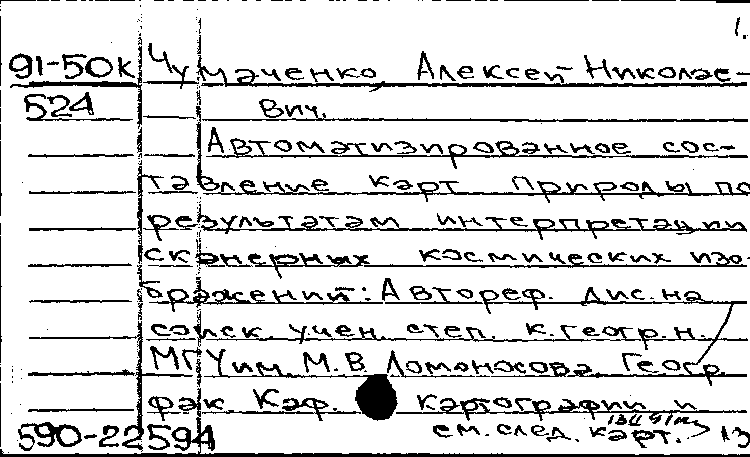 1.
91-50к Чумаченко, Алексей Николае-
524 вич.
Автоматизированное сос-
тавление карт природы по
результатам интерпретации
сканерных космических изо-
бражений: Автореф. дис. на
соиск. учен. степ. к. геогр. н.
МГУ им. М. В. Ломоносова. Геогр.
фак. Каф. картографии и
590-22594 см. след. карт. 13